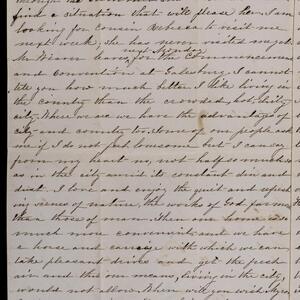 find a situation that will please her. I am
looking for cousin Rebecca to visit me
next week, she has never visited us yet.
next Monday
Mr. leaves for the Commencement
and convention at Galesburg. I cannot
tell you how much better I like living in
the country than the crowded, hot, dirty
city. Where we are we have the advantage of
city and country too. Some of our people ask
me if I do not feel lonesome, but I can say
from my heart no, not half so much so
as in the city amid its constant din and
dust. I love and enjoy the quiet and refresh
ing views of nature, the works of God far more
than those of man. Then our house is so
much more convenient and we have
a horse and carriage with which we can
take pleasant drives and get the fresh
air and this our means, living in the city,
would not allow. When will you wish